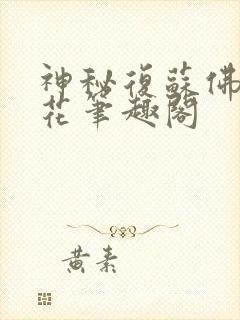 神秘復蘇佛
花筆趣閣
黃素